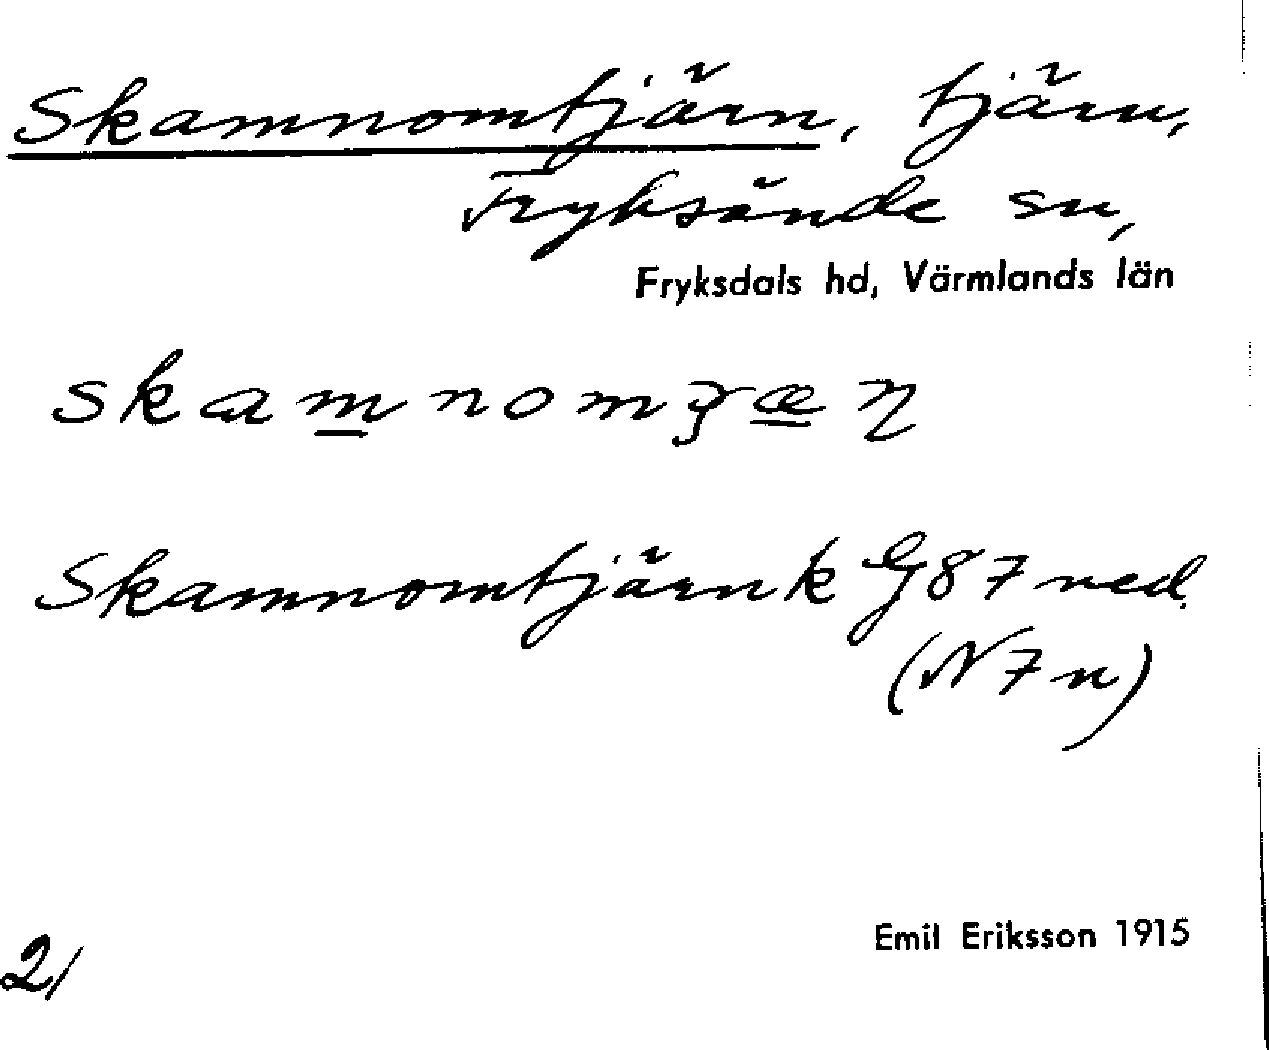 Skamnomtjärn, tjärn,
Fryksände sn,
Fryksdals hd, Värmlands län
Skamnomtjärn k G 87 ned.
(N 7 n)
Emil Eriksson 1915
21